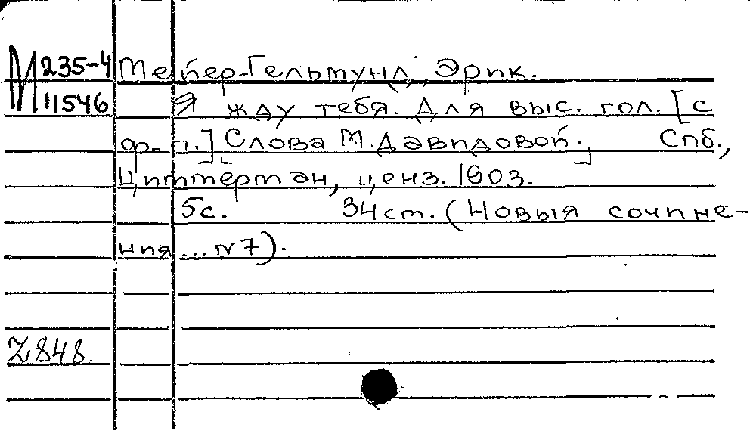 М 235-4 Мейер-Гельмунд, Эрик.
11546 Я жду тебя. Для выс. гол. [с
фр-п.] [Слова М. Давидовой.] Спб.,
Циммерман, ценз. 1903.
5с. 34ст. (Новыя сочине-
ния ... №7).
Z848